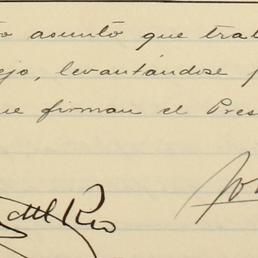 o asunto que trat
ejo, levantándose p
ue firman el Pres
del Rio